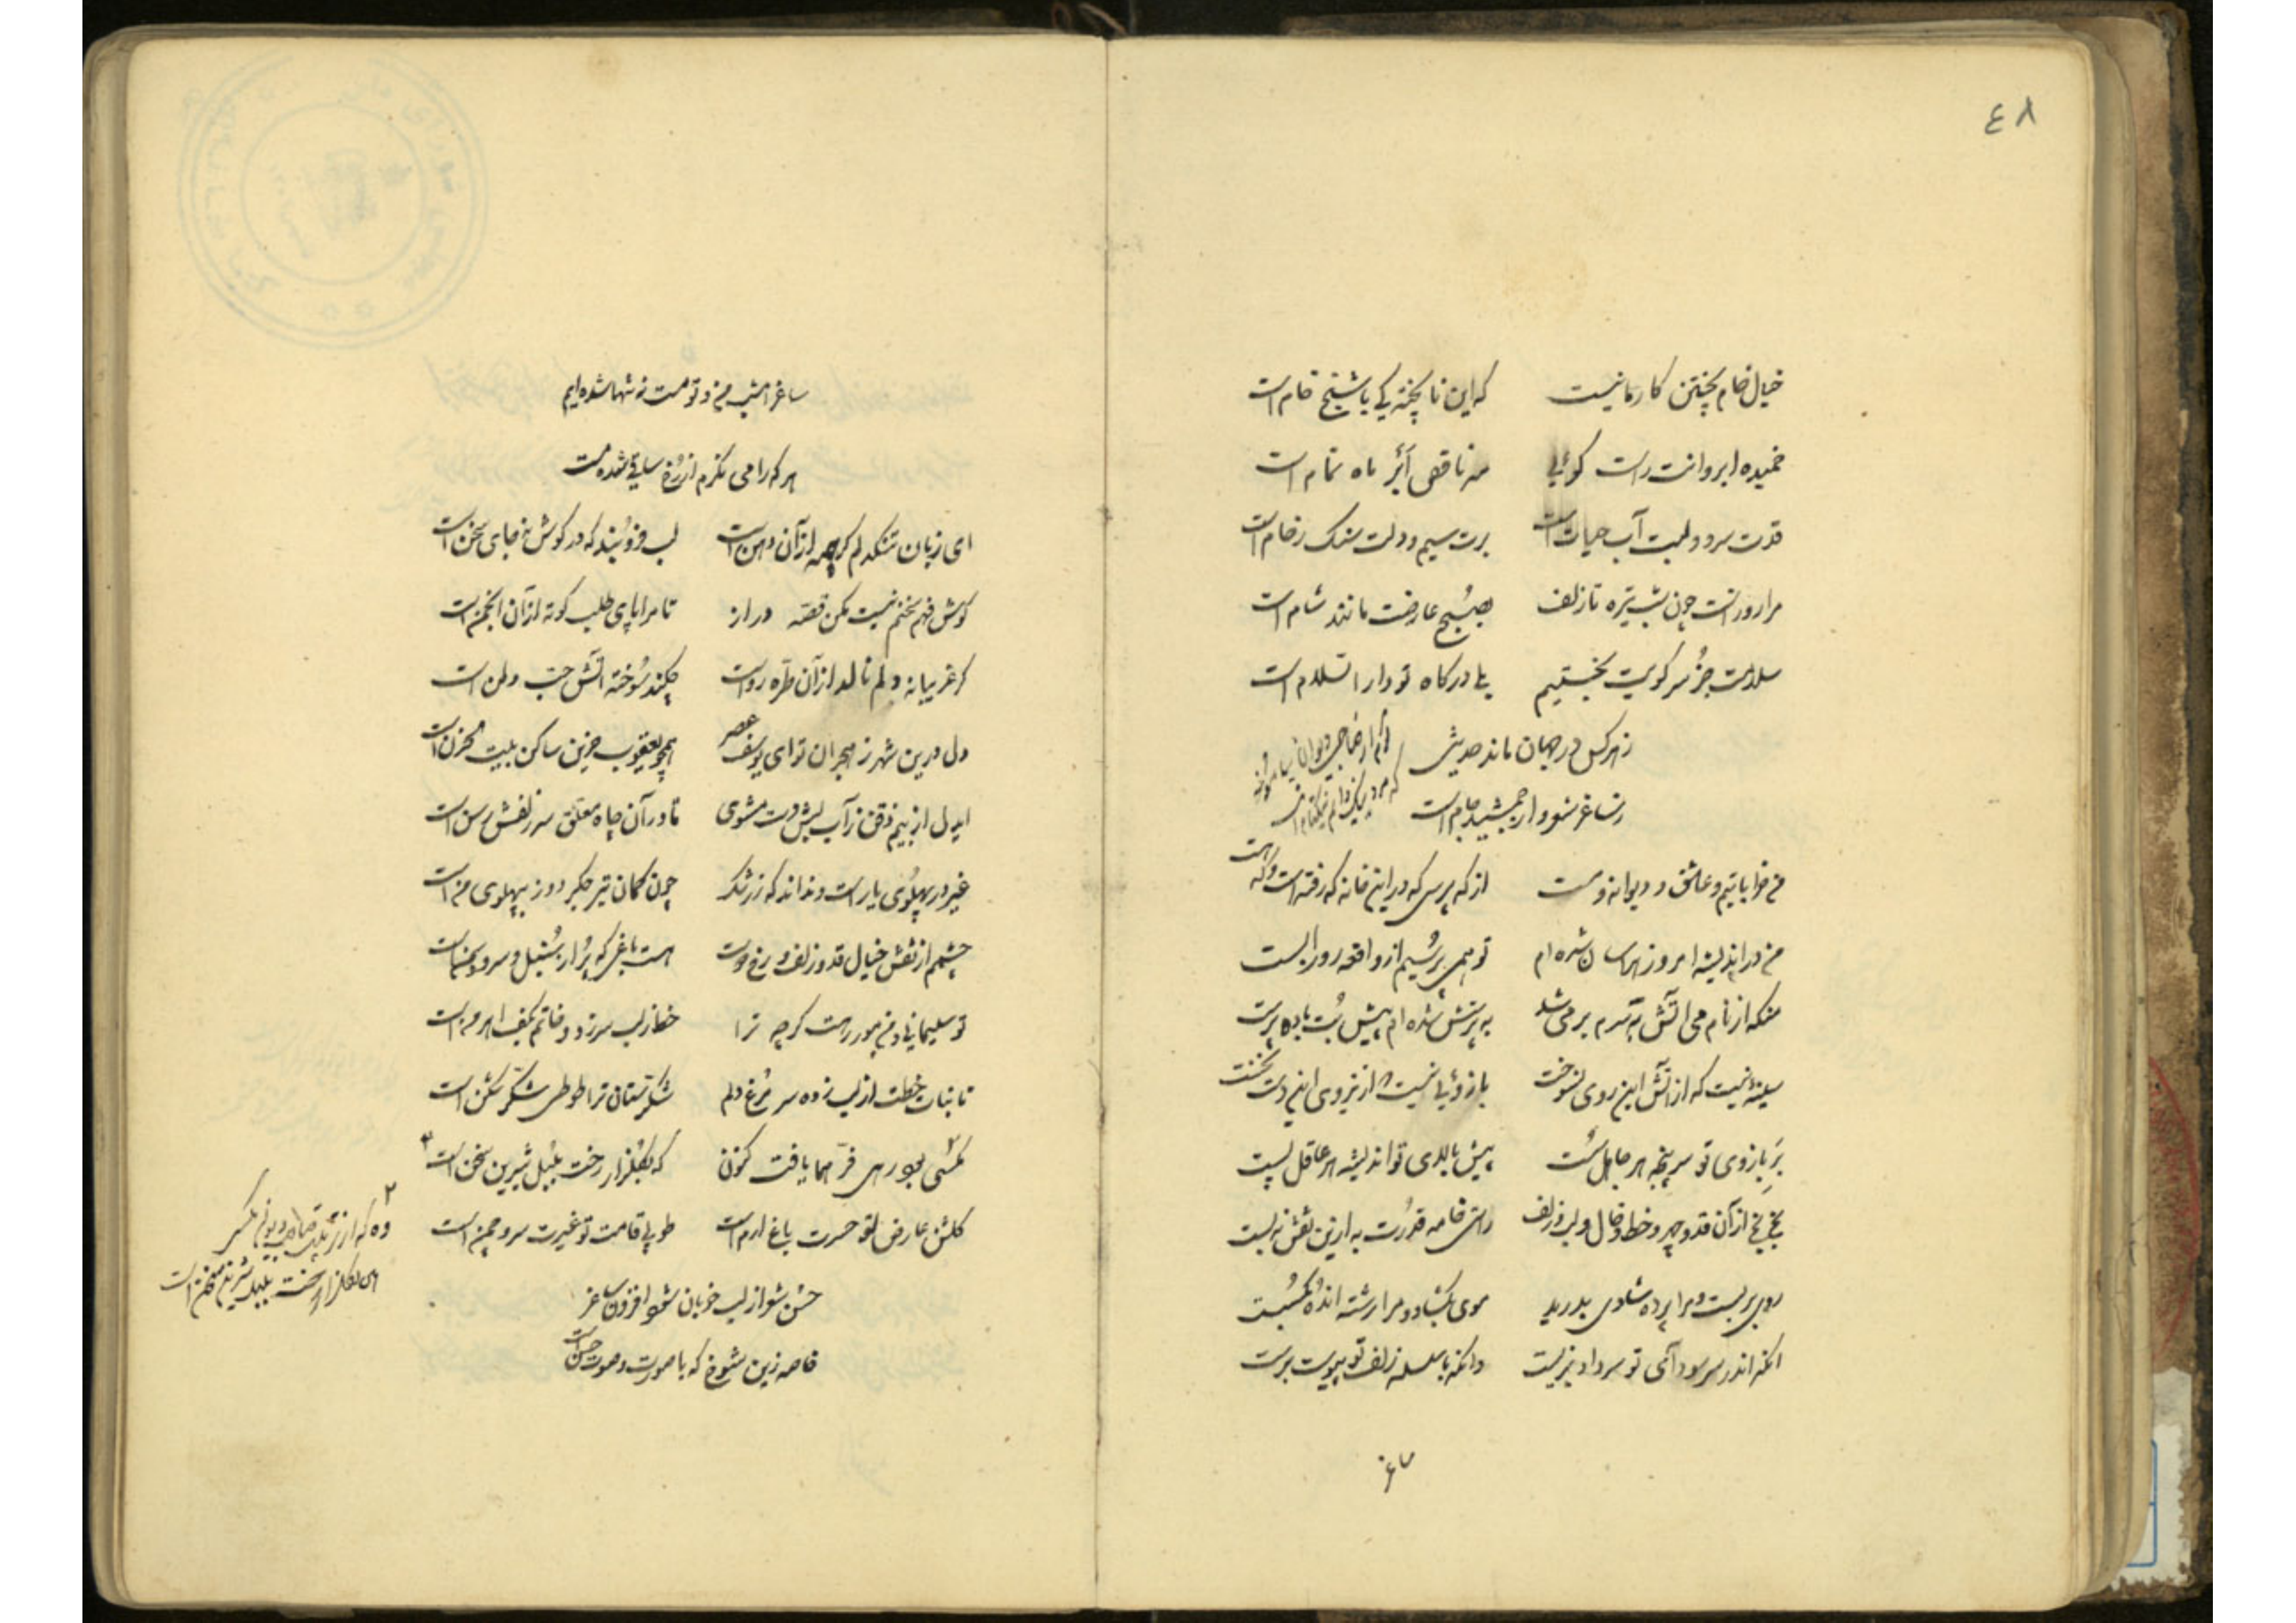 ۴۸
خیال خام پختن کار ما نیست که این ناپخته یکی با شیخ خام است
خمیده ابروانت راست گوئی مه ناقص بر ماه تمام است
قدت سرو و لبت آب حیات است برت سیم و دلت سنگ رخام است
مرا روز است چون شب تیره تا زلف بصبح عارضت مانند شام است
سلامت جز سر کویت نجستیم بلی درگاه تو دار السلام است
ز هر کس در جهان ماند حدیثی
ز ساغر شعر و از جمشید جام است
من خراباتیم و عاشق و دیوانه و مست از که پرسی که در این خانه که رفته است و که هست
من در اندیشه امروز هراسان شده ام تو همی پرسیم از واقعه روز الست
منکه از نام می آتش به سرم بر می شد به پرستش شده ام پیش بت باده پرست
سینهٔ نیست که از آتش این روی نسوخت بازوئی نیست که از نیروی این دست نخست
بر بازوی تو سرپنجه هر جاهل سست پیش بالای تو اندیشه هر عاقل پست
بخ بخ از آن قد و چهر و خط و خال و لب و زلف راستی خامه قدرت به از این نقش نبست
روی بربست و مرا پرده شادی بدرید موی بگشاد و مرا رشته اندُه بگسست
آنکه اندر سر سودای تو سر داد بزیست وانکه با سلسله زلف تو پیوست برست
ساغر
ساغر امشب من و تو مست نه تنها شده ایم
هر که را می نگرم از رخ ساقی شده مست
ای زبان تنگدلم گرچه از آن دهن است لب فروبند که در گوش نه جای سخن است
گوش فهم سخنم نیست مکن قصه دراز تا مرا پای طلب کوته از آن انجمن است
گر غریبانه دلم نالد از آن طره رواست چکند سوخته آتش حب وطن است
دل درین شهر ز هجران تو ای یوسف عصر همچو یعقوب حزین ساکن بیت حزن است
ایدل از بیم ذقن ز آب لبش دست مشوی تا در آن چاه معلق سر زلفش رسن است
غیر در پهلوی یار است و نداند که ز رشک چون کمان تیر جگر دوز بپهلوی من است
چشمم از نقش خیال قد و زلف و رخ دوست هست باغی که پر از سنبل و سرو و سمن است
تو سلیمانی و من مور رهت گرچه ترا خط ز لب سرزد و خاتم بکف اهرمن است
تا نبات خطت از لب زده سر مرغ دلم شکرستان ترا طوطی شکر شکن است
مگسی بود رهی فر هما یافت کنون که بگلزار رخت بلبل شیرین سخن است
گلشن عارض تو حسرت باغ ارم است طوبی قامت تو غیرت سرو چمن است
خوش شو از لب خوبان شعر افزون ساغر
خاصه زین شوخ که با صورت و صوت حسن است
بگلزار رخت بلبل شیرین سخن است